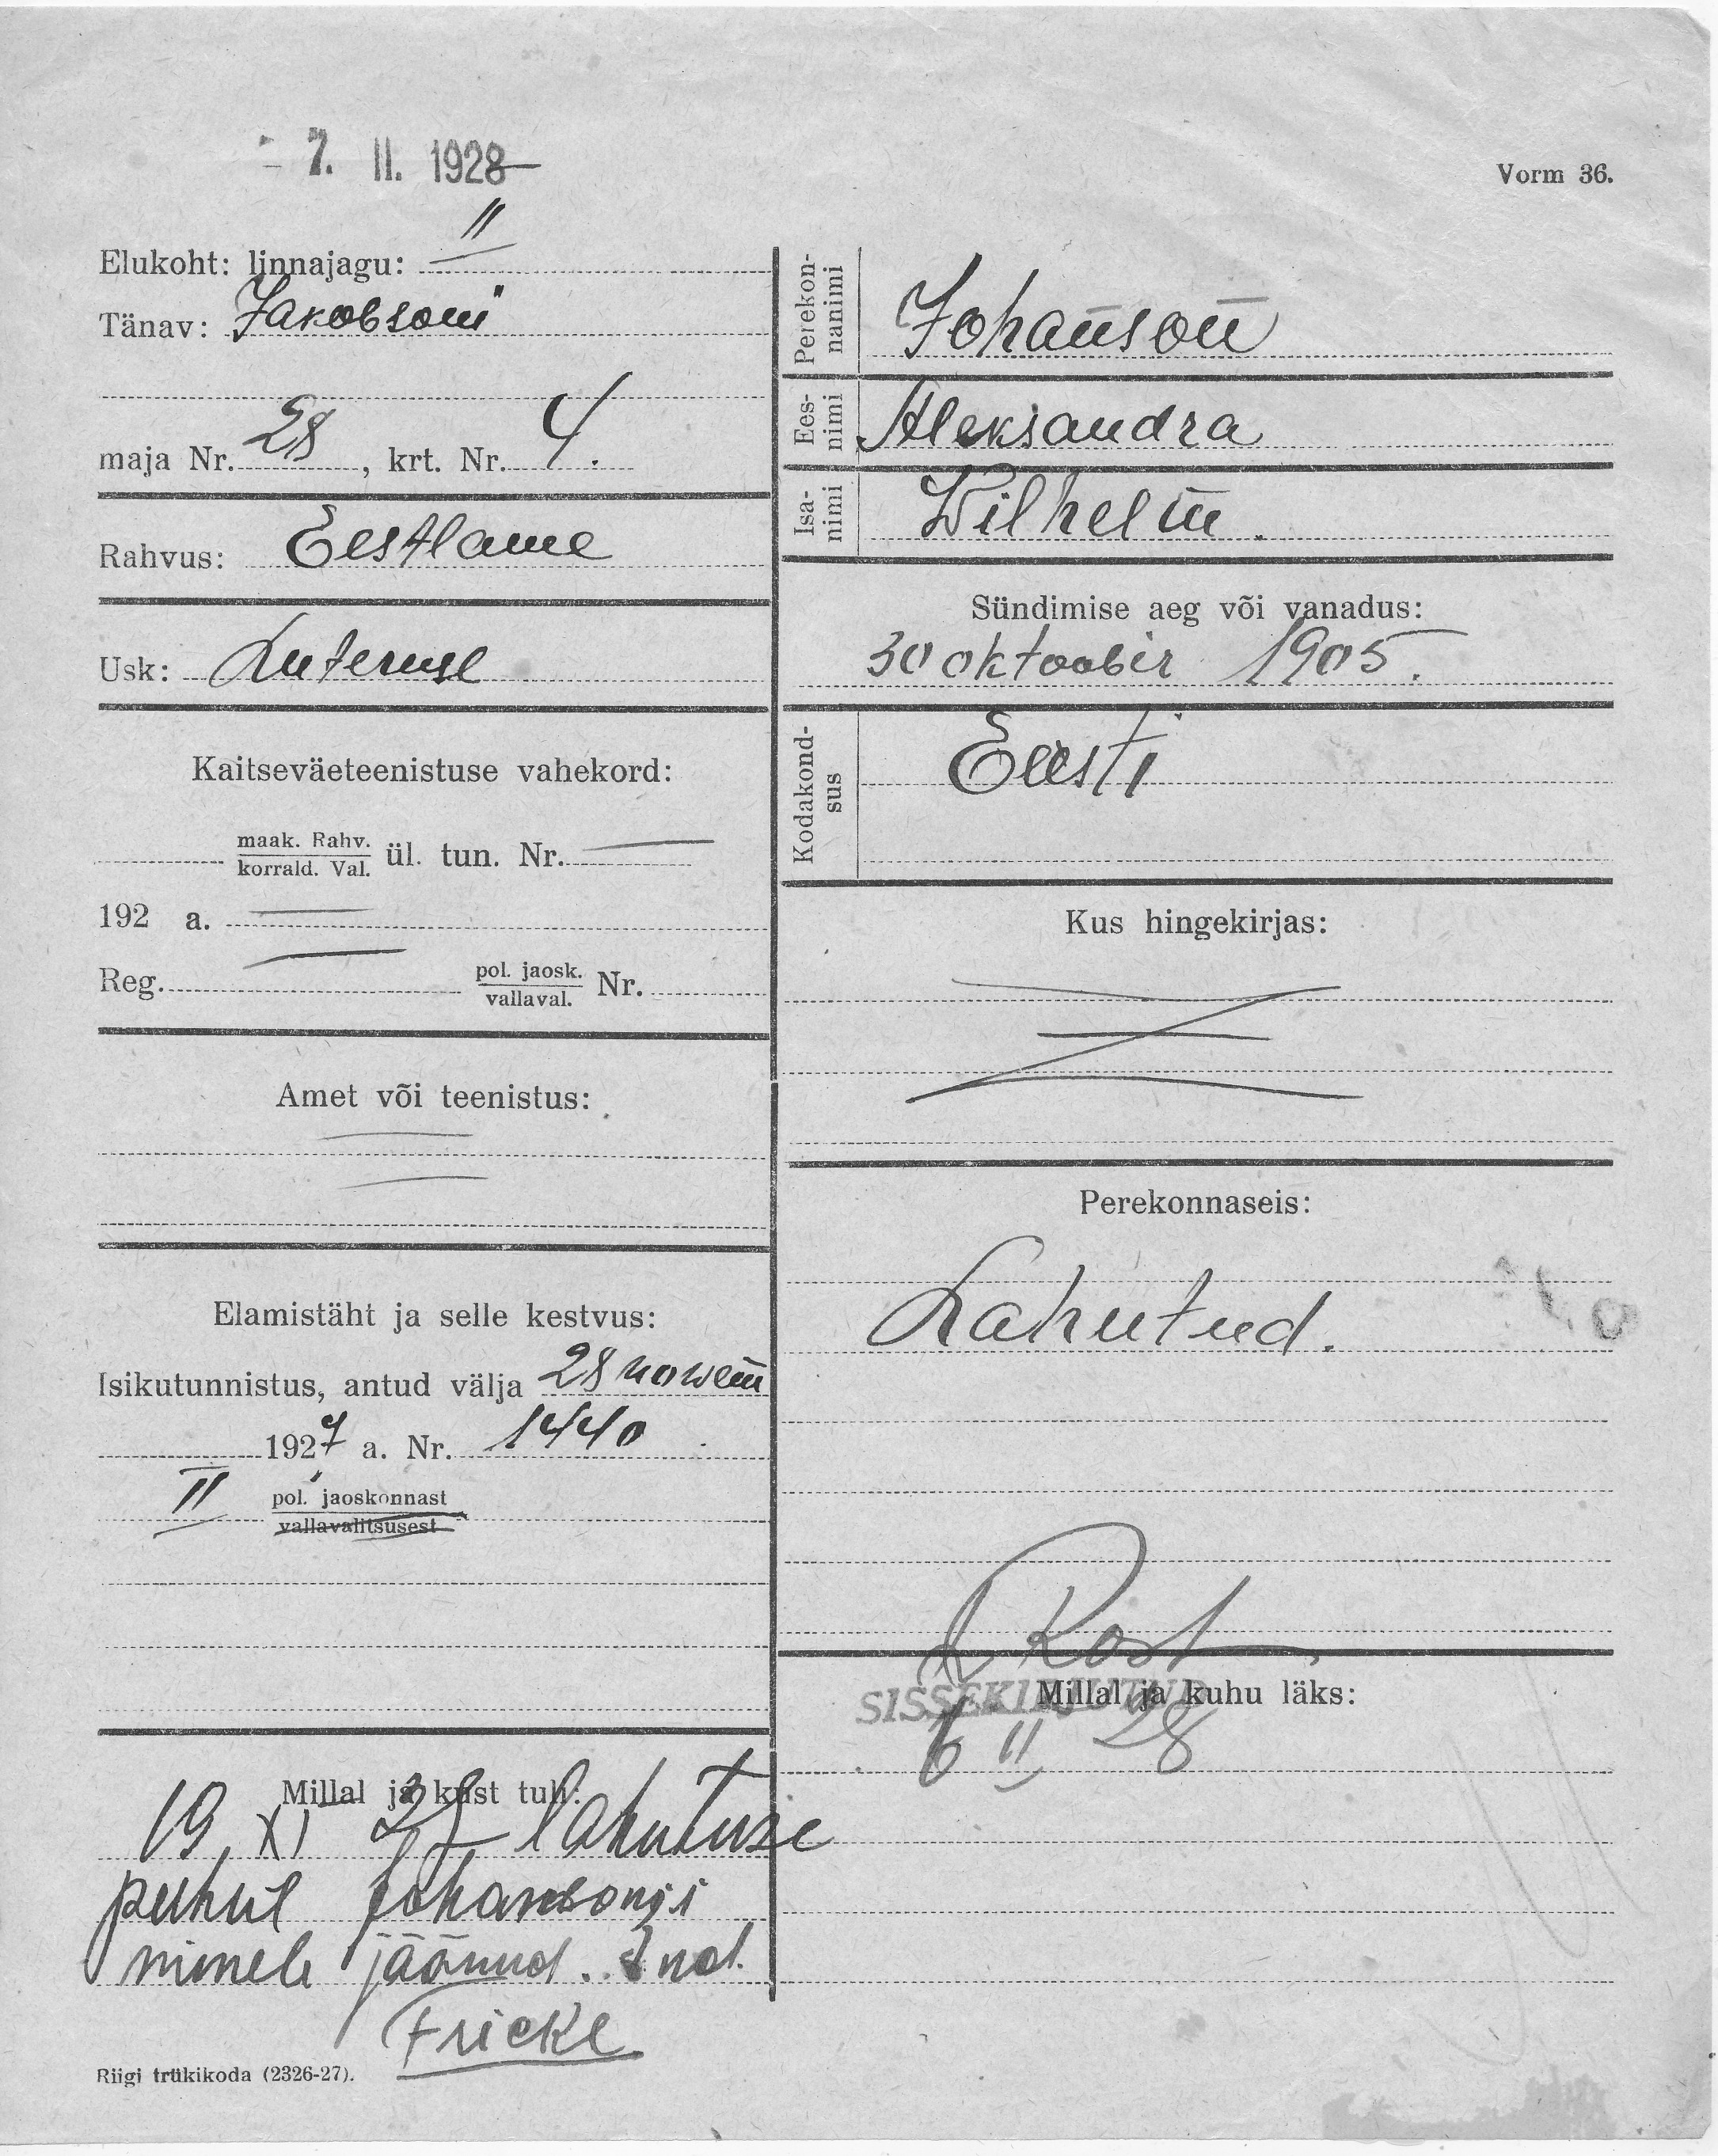 - 7. II. 1928
Vorm 36.
Elukoht: linnajagu: II
Tänav: Jakobsoni
maja Nr. 28, krt. Nr. 4.
Rahvus: Eestlane
Usk: Luteruse
Kaitseväeteenistuse vahekord:
maak. Rahv.
korrald. Val. ül. tun. Nr. —
192 a. —
Reg. — pol. jaosk.
vallaval. Nr.
Amet või teenistus:
Elamistäht ja selle kestvus:
Isikutunnistus, antud välja 28 nowem
1927 a. Nr. 1440
II pol. jaoskonnast
vallavalitsusest
Millal ja kust tuli:
19 XI 27 lahutuse
puhul Johansoni
nimele jäänud. end.
Fricke
Riigi trükikoda (2326-27).
Perekon-
nanimi
Johanson
Ees-
nimi
Aleksandra
Isa-
nimi
Wilhelm.
Sündimise aeg või vanadus:
30 oktoober 1905.
Kodakond-
sus
Eesti
Kus hingekirjas:
Perekonnaseis:
Lahutud.
Rost
SISSEKIRJUTUD
Millal ja kuhu läks:
6 II 28